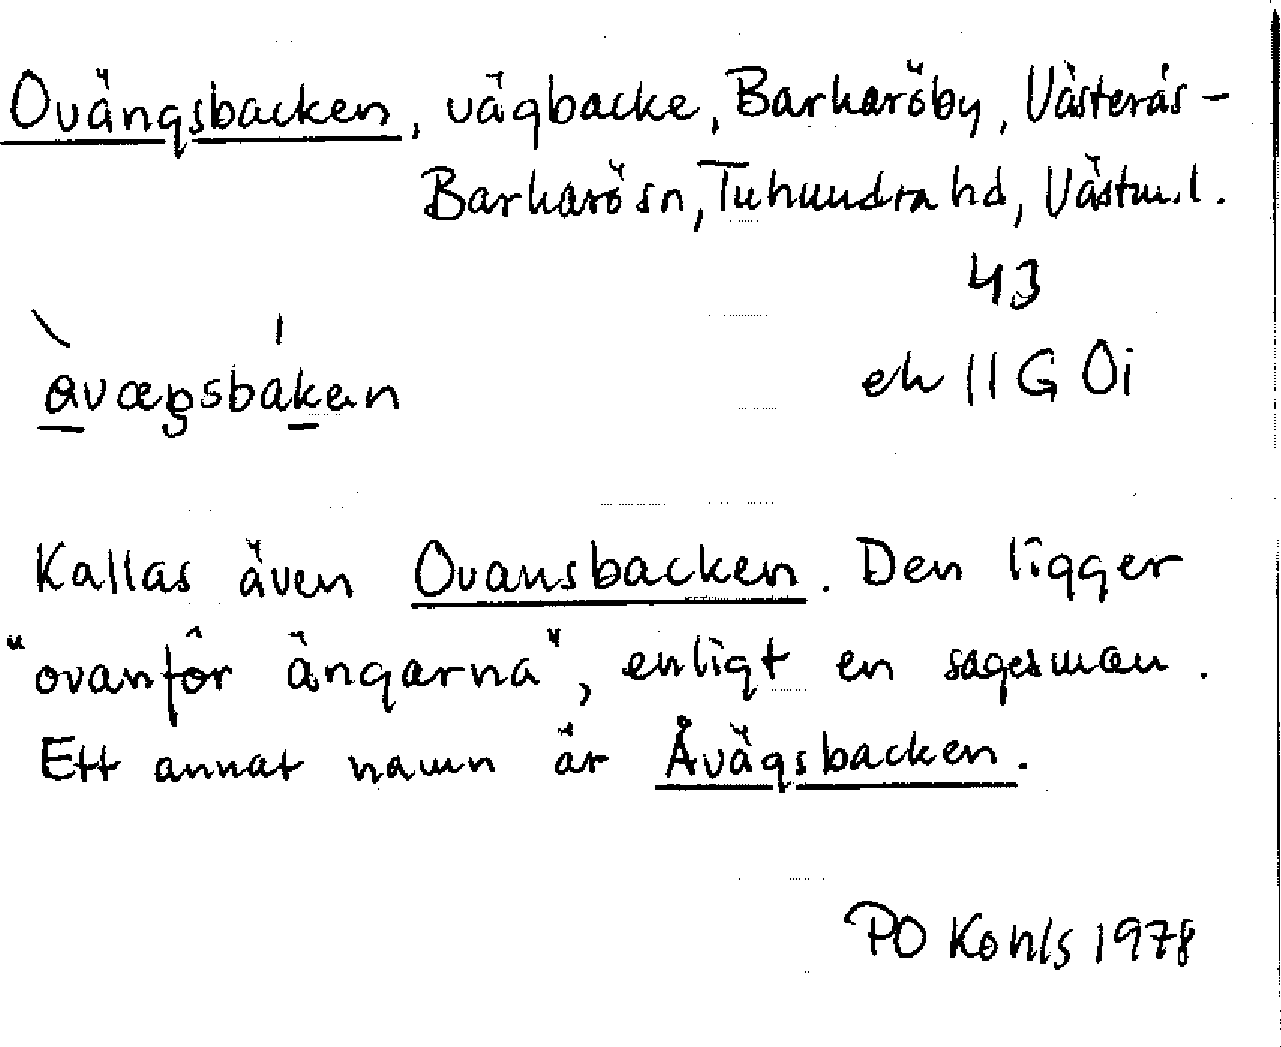 Ovängsbacken, vägbacke, Barkaröby, Västerås-
Barkarö sn, Tuhundra hd, Västml.
43
ek 11 G 0i
Kallas även Ovansbacken. Den ligger
"ovanför ängarna", enligt en sagesman.
Ett annat namn är Åvägsbacken.
PO Konls 1978